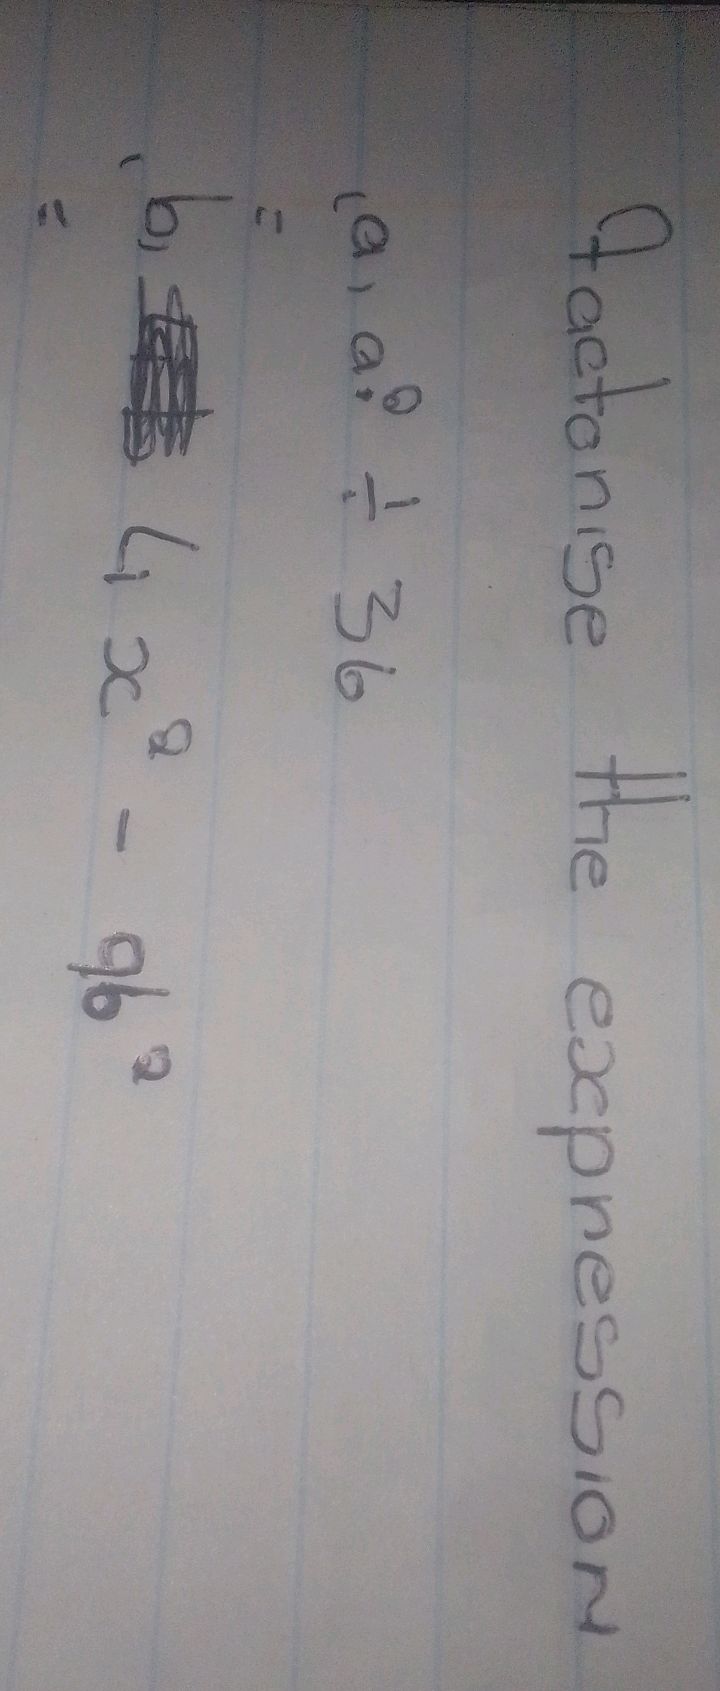 factorise the expression
(a, a² ÷ 36
=
(b, 4x² - 9b²
=